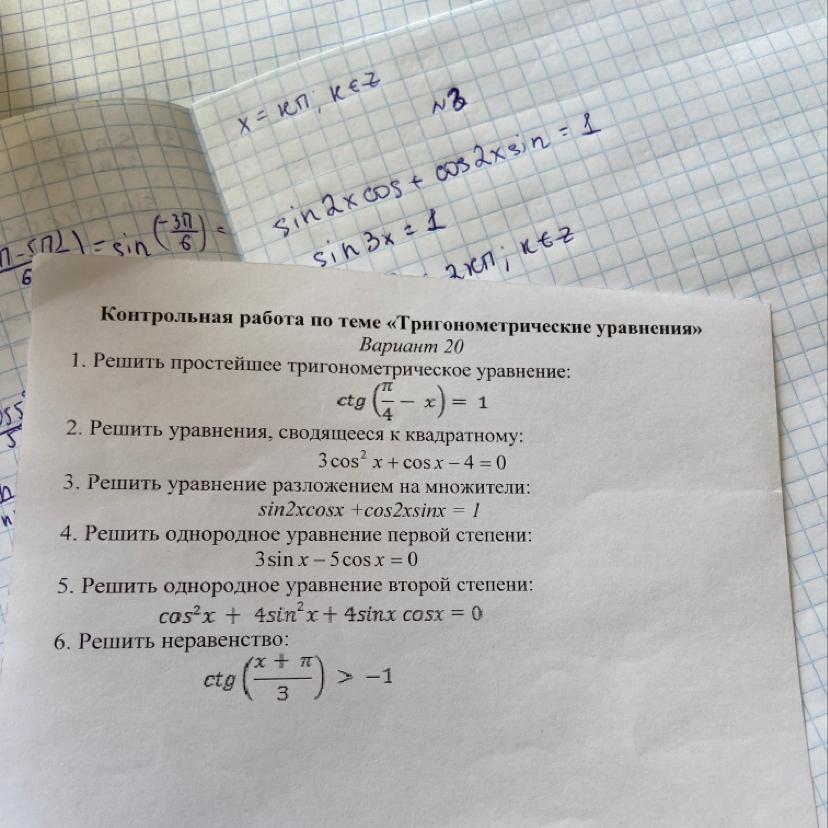 x = кπ; к∈z
№3
sin2xcos + cos2xsin = 1
sin3x = 1
2кπ; к∈z
= sin(-3π/6) =
Контрольная работа по теме «Тригонометрические уравнения»
Вариант 20
1. Решить простейшее тригонометрическое уравнение:
ctg (π/4 − x) = 1
2. Решить уравнения, сводящееся к квадратному:
3cos² x + cos x − 4 = 0
3. Решить уравнение разложением на множители:
sin2xcosx +cos2xsinx = 1
4. Решить однородное уравнение первой степени:
3sin x − 5cos x = 0
5. Решить однородное уравнение второй степени:
cos²x + 4sin²x + 4sinx cosx = 0
6. Решить неравенство:
ctg ((x + π)/3) > −1